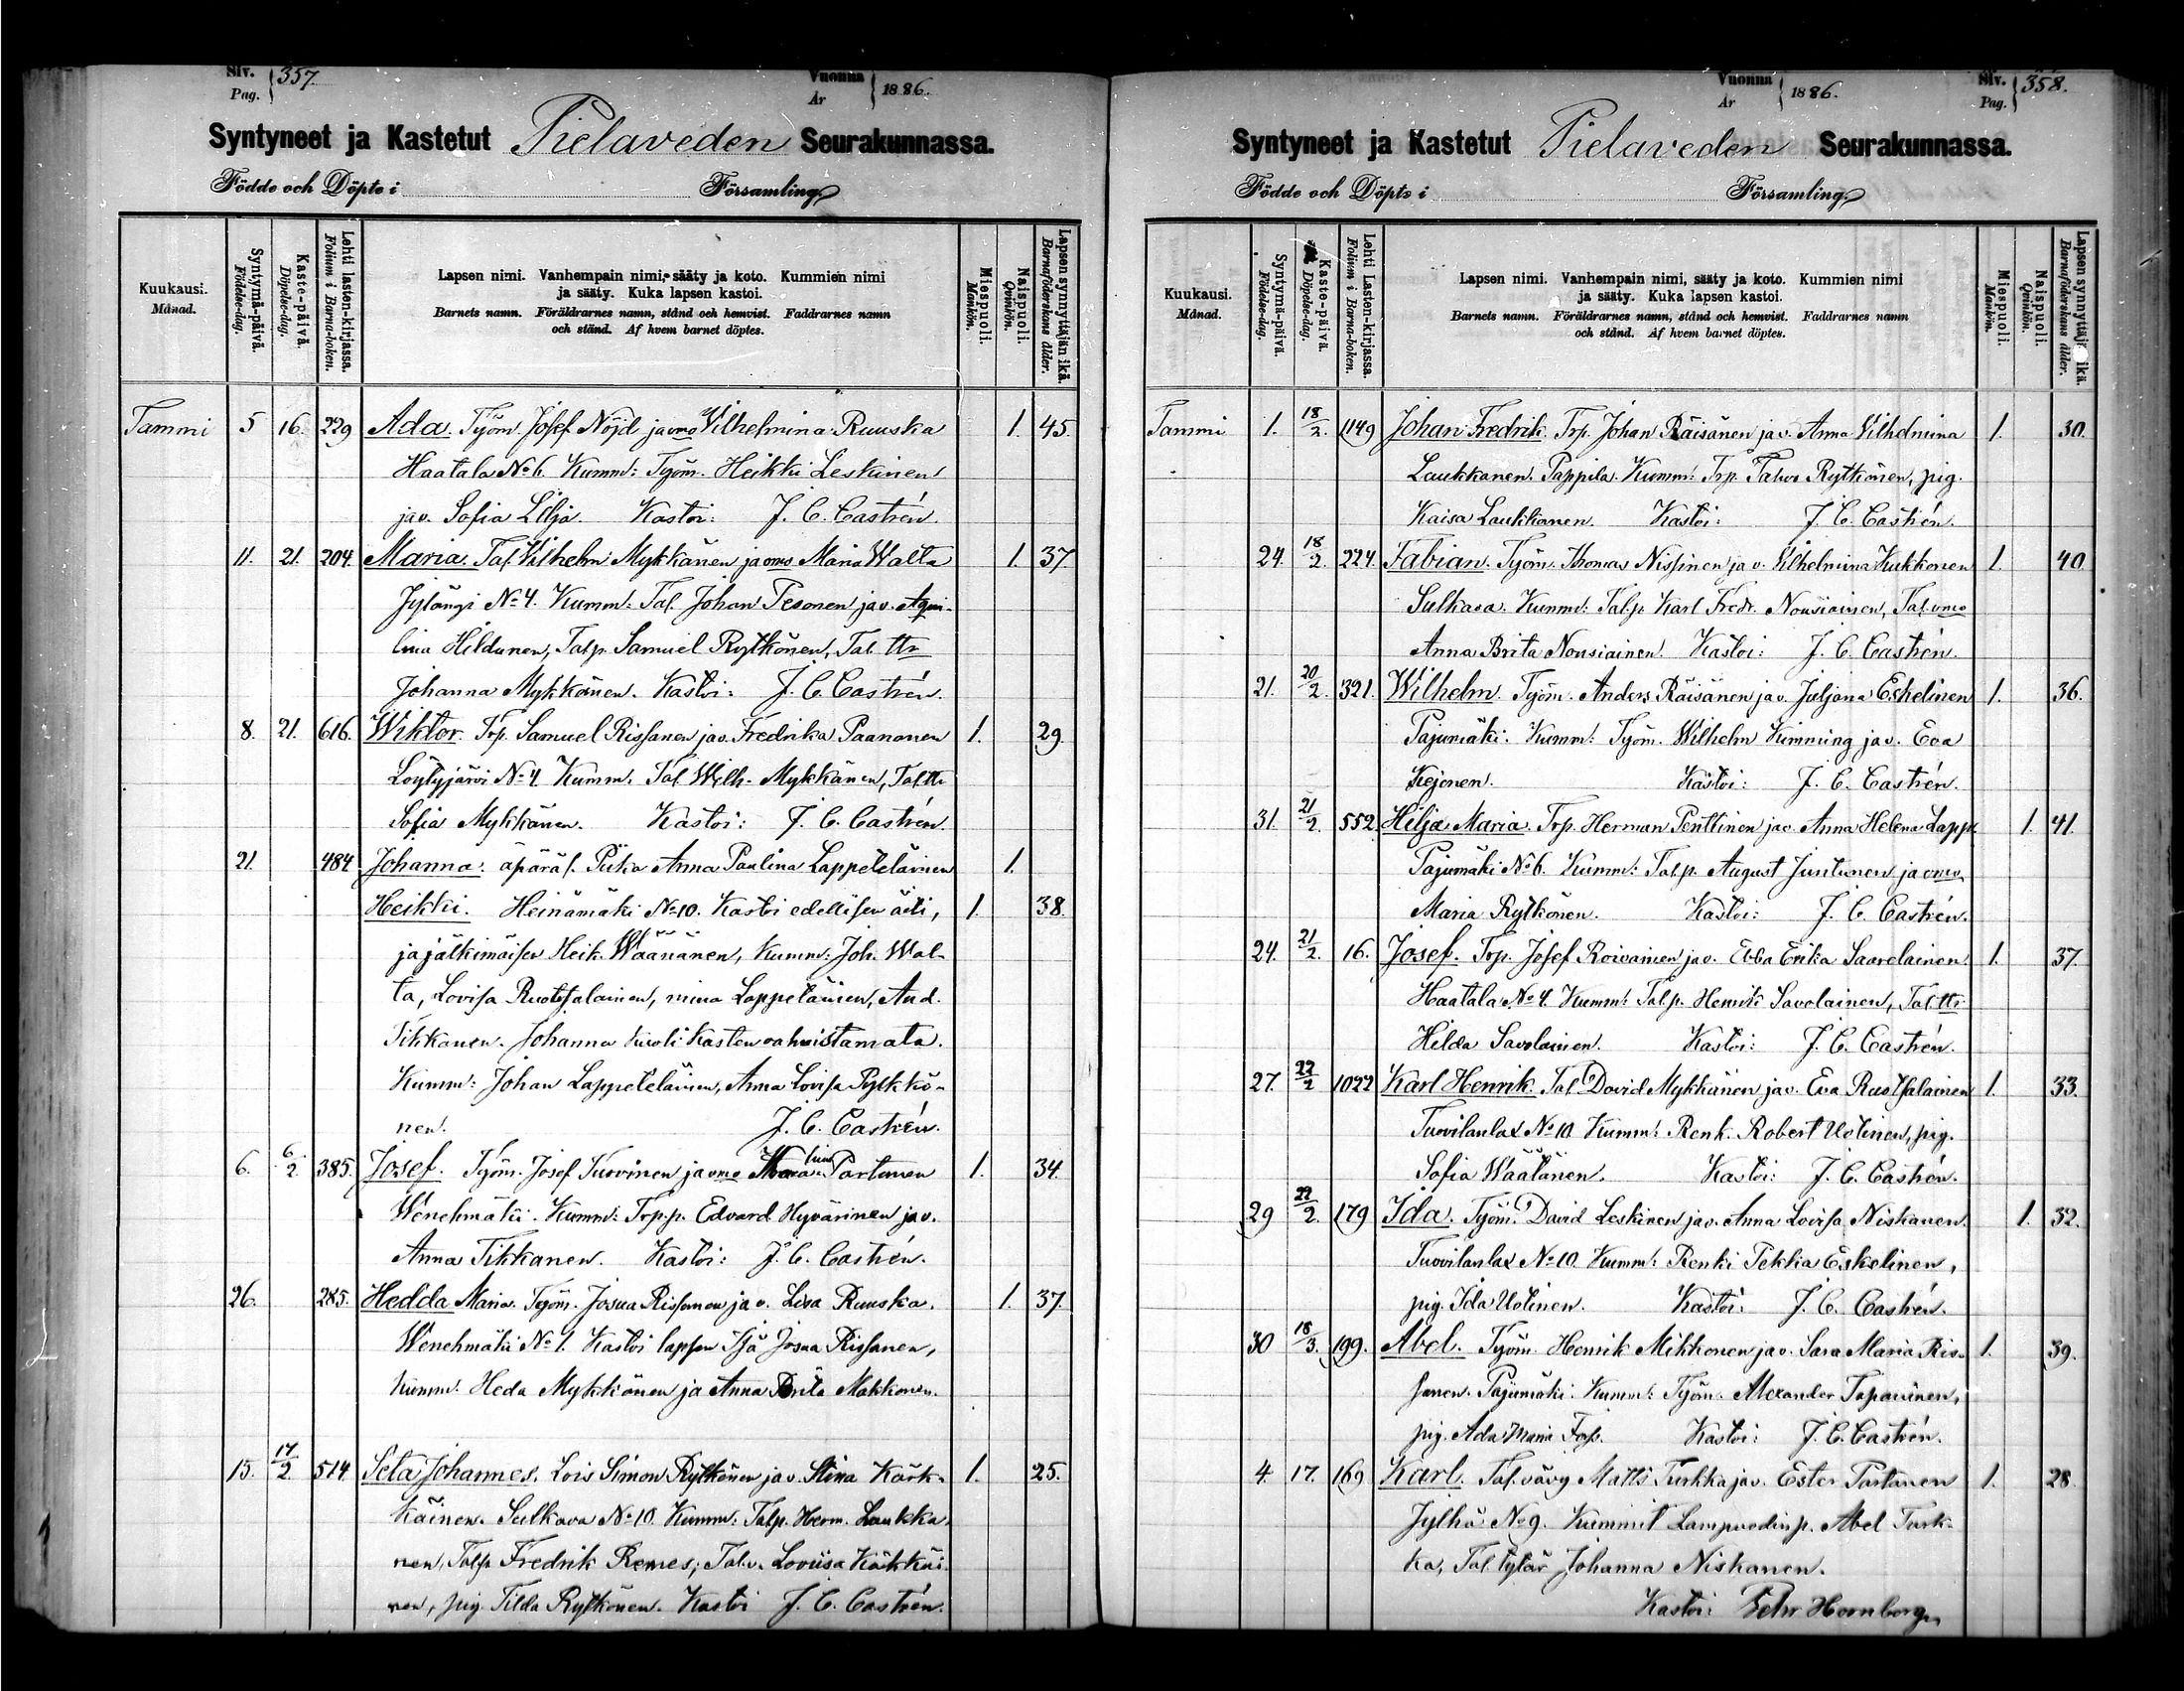 Siv. Pag. 357. Vuonna År 1886.
Syntyneet ja Kastetut Pielaveden Seurakunnassa.
Födde och Döpte i Församling
Kuukausi. Månad.
Syntymä-päivä. Födelse-dag.
Kaste-päivä. Döpelse-dag.
Lehti lasten-kirjassa. Folium i Barna-boken.
Lapsen nimi. Vanhempain nimi, sääty ja koto. Kummien nimi
ja sääty. Kuka lapsen kastoi.
Barnets namn. Föräldrarnes namn, stånd och hemvist. Faddrarnes namn
och stånd. Af hvem barnet döptes.
Miespuoli. Mankön.
Naispuoli. Qvinkön.
Lapsen synnyttäjän ikä. Barnaföderskans ålder.
Tammi 5 16. 229 Ada. Työm. Josef Nöjd ja vmo Vilhelmina Ruuska 1. 45.
Haatala No 6. Kumm: Työm. Heikki Leskinen
ja v. Sofia Lilja. Kastoi: J. C. Castrén.
11. 21. 204. Maria. Tal. Vilhelm Mykkänen ja vmo Maria Walta 1. 37.
Jylängi No 4. Kumm: Tal. Johan Pesonen ja v. Aqui-
lina Hildunen, Talp. Samuel Rytkönen, Tal. ttr
Johanna Mykkänen. Kastoi: J. C. Castrén.
8. 21. 616. Wiktor. Trp. Samuel Rissanen ja v. Fredrika Paananen 1. 29.
Löytyjärvi No 4. Kumm: Tal. Wilh. Mykkänen, Tal. ttr
Sofia Mykkänen. Kastoi: J. C. Castrén.
21. 484 Johanna. äpärä l. Piika Anna Paulina Lappeteläinen 1.
Heikki. Heinämäki No 10. Kastoi edellisen äiti, 1. 38.
ja jälkimäisen Heik. Wäänänen, Kumm: Joh. Wal-
ta, Lovisa Ruotsalainen, mina Lappeläinen, And.
Tikkanen. Johanna kuoli kasten vahvistamata.
Kumm: Johan Lappeteläinen, Anna Lovisa Pylkkö-
nen. J. C. Castrén.
6. 6/2 385. Josef. Työm. Josef Turvinen ja vmo Partanen 1. 34.
Wenehmäki. Kumm: Trp.p. Edvard Hyvärinen ja v.
Anna Tikkanen. Kastoi: J. C. Castrén.
26. 285. Hedda Maria. Työm. Josua Rissanen ja v. Lisa Ruuska. 1. 37.
Wenehmäki No 1. Kastoi lapsen Isä Josua Rissanen,
kumm. Heda Mykkänen ja Anna Brita Makkonen.
15. 17/2 514. Seta Johannes. Lois Simon Rytkönen ja v. Stina Kärk- 1. 25.
käinen. Sulkava No 10. Kumm: Talp. Herm. Laukka-
nen, Talp. Fredrik Remes, Tal.v. Loviisa Käkkäi-
nen, pig. Tilda Rytkönen. Kastoi J. C. Castrén.
Vuonna År 1886. Siv. Pag. 358.
Syntyneet ja Kastetut Pielaveden Seurakunnassa.
Födde och Döpte i Församling
Kuukausi. Månad.
Syntymä-päivä. Födelse-dag.
Kaste-päivä. Döpelse-dag.
Lehti Lasten-kirjassa. Folium i Barna-boken.
Lapsen nimi. Vanhempain nimi, sääty ja koto. Kummien nimi
ja sääty. Kuka lapsen kastoi.
Barnets namn. Föräldrarnes namn, stånd och hemvist. Faddrarnes namn
och stånd. Af hvem barnet döptes.
Miespuoli. Mankön.
Naispuoli. Qvinkön.
Lapsen synnyttäj ikä. Barnaföderskans ålder.
Tammi 1. 18/2. 1149 Johan Fredrik. Trp. Johan Räisänen ja v. Anna Vilhelmina 1. 30.
Laukkanen. Pappila. Kumm: Trp. Rytkönen, pig.
Kaisa Laukkanen. Kastoi: J. C. Castrén.
24. 18/2. 224. Fabian. Työm. Thomas Nissinen ja v. Vilhelmina Kukkonen 1. 40.
Sulkava. Kumm: Tal.p. Karl Fredr. Nousiainen, Tal. vmo
Anna Brita Nousiainen. Kastoi: J. C. Castrén.
21. 20/2. 321. Wilhelm. Työm. Anders Räisänen ja v. Juljana Eskelinen 1. 36.
Pajumäki. Kumm: Työm. Wilhelm Kimming ja v. Eva
Kejonen. Kastoi: J. C. Castrén.
31. 21/2. 552 Hilja Maria. Trp. Herman Penttinen ja v. Anna Helena Lapp. 1. 41.
Pajumäki No 6. Kumm: Tal.p. August Juntunen ja vmo
Maria Rytkönen. Kastoi: J. C. Castrén.
24. 21/2. 16. Josef. Trp. Josef Roivainen ja v. Ebba Erika Saarelainen 1. 37.
Haatala No 4. Kumm: Tal.p. Henrik Savolainen, Tal. ttr
Hilda Savolainen. Kastoi: J. C. Castrén.
27. 22/2 1022 Karl Henrik. Tal. David Mykkänen ja v. Eva Ruotsalainen 1. 33.
Tuovilanlax No 10 Kumm: Renk. Robert Uotinen, pig.
Sofia Wäätänen. Kastoi: J. C. Castrén.
29 22/2. 179 Ida. Työm. David Leskinen ja v. Anna Lovisa Niskanen. 1. 32.
Tuovilanlax No 10 Kumm: Renki Pekka Eskelinen,
pig. Ida Uotinen. Kastoi: J. C. Castrén.
30 18/3. 199. Abel. Työm. Henrik Mikkonen ja v. Sara Maria Ris- 1. 39.
sanen. Pajumäki. Kumm: Työm. Alexander Tapaninen,
pig. Ada Maria Kastoi: J. C. Castrén.
4. 17. 169 Karl. Tal. vävy Matts Turkka ja v. Ester Partanen 1. 28.
Jylhä No 9. Kummit Lampuodinp. Abel Turk-
ka, Tal. tytär Johanna Niskanen.
Kastoi: Petr. Hornborg